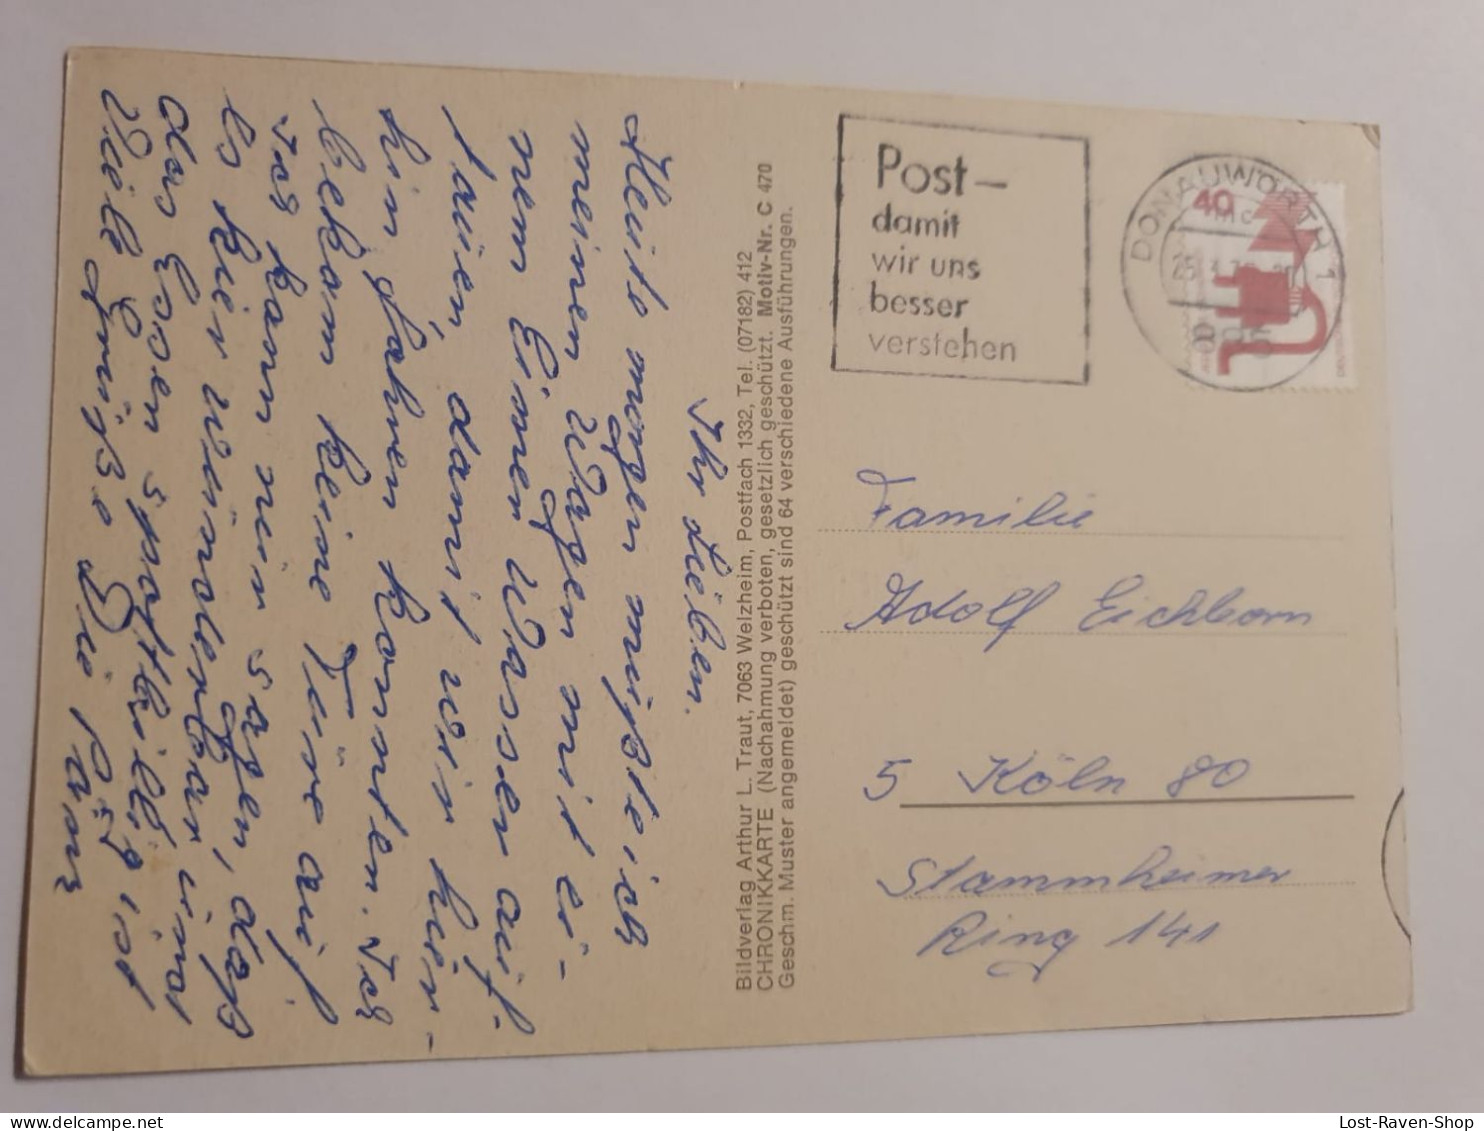 Ihr Lieben.
Heute morgen mußte ich
meinen Wagen mit ei-
nem Eimer Wasser auf-
tauen, damit wir hin-
fahren konnten. Ich
bekam keine Türe auf
Ich kann nur sagen, daß
es hier wunderbar ist
das Essen spottbillig ist
Viele Grüße
Bildverlag Arthur L. Traut, 7063 Welzheim, Postfach 1332, Tel. (07182) 412
CHRONIKKARTE (Nachahmung verboten, gesetzlich geschützt. Motiv-Nr. C 470
Geschm. Muster angemeldet) geschützt sind 64 verschiedene Ausführungen.
Post-
damit
wir uns
besser
verstehen
DONAUWÖRTH 1
40
Familie
Adolf Eichhorn
5 Köln 80
Stammheimer
Ring 141
Lost-Raven-Shop